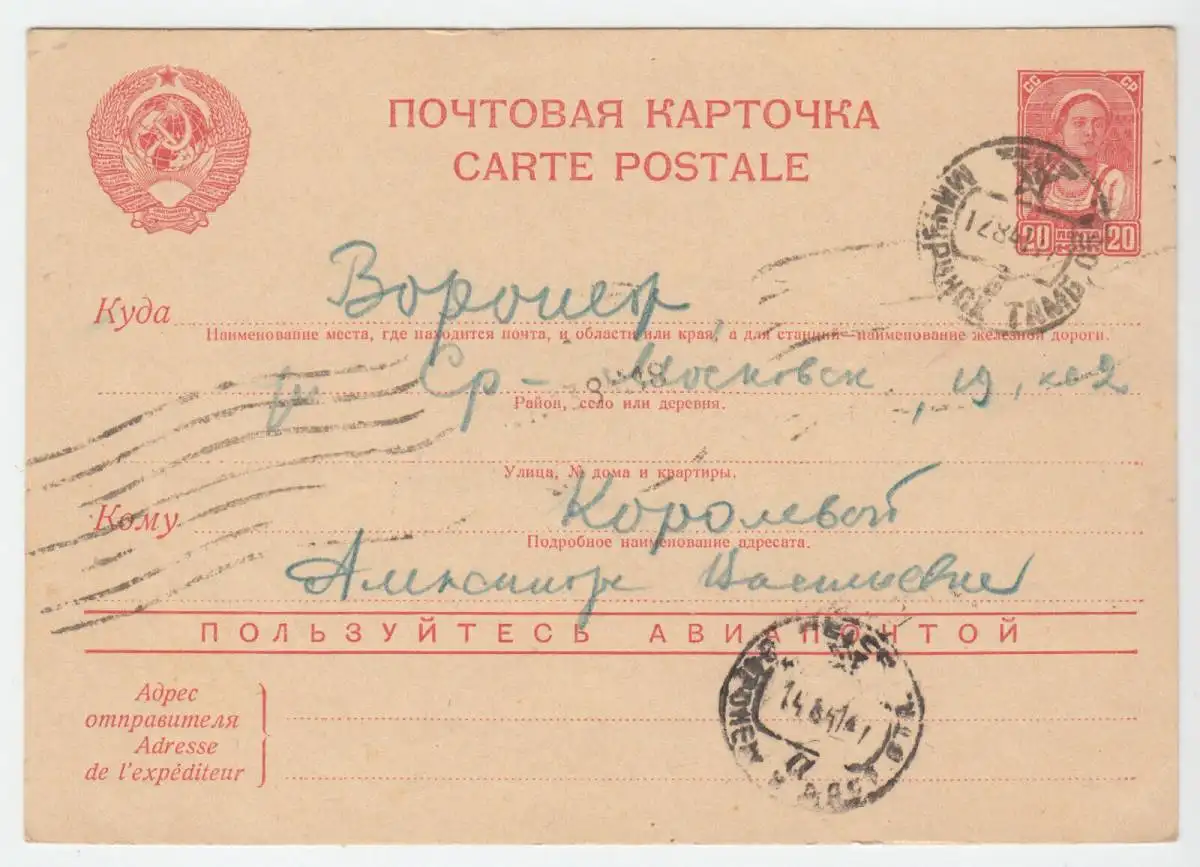 ПОЧТОВАЯ КАРТОЧКА
CARTE POSTALE
СС СР
20 20
Куда Воронеж,
Наименование места, где находится почта, и области или края, а для станций—наименование железной дороги.
Ср-Московск, 19, кв 2
Район, село или деревня.
Улица, № дома и квартиры.
Кому Королевой
Подробное наименование адресата.
Александре Васильевне
ПОЛЬЗУЙТЕСЬ АВИАПОЧТОЙ
Адрес
отправителя
Adresse
de l'expéditeur
МИЧУРИНСК ТАМБ ОБ
12 8 41
14 8 41